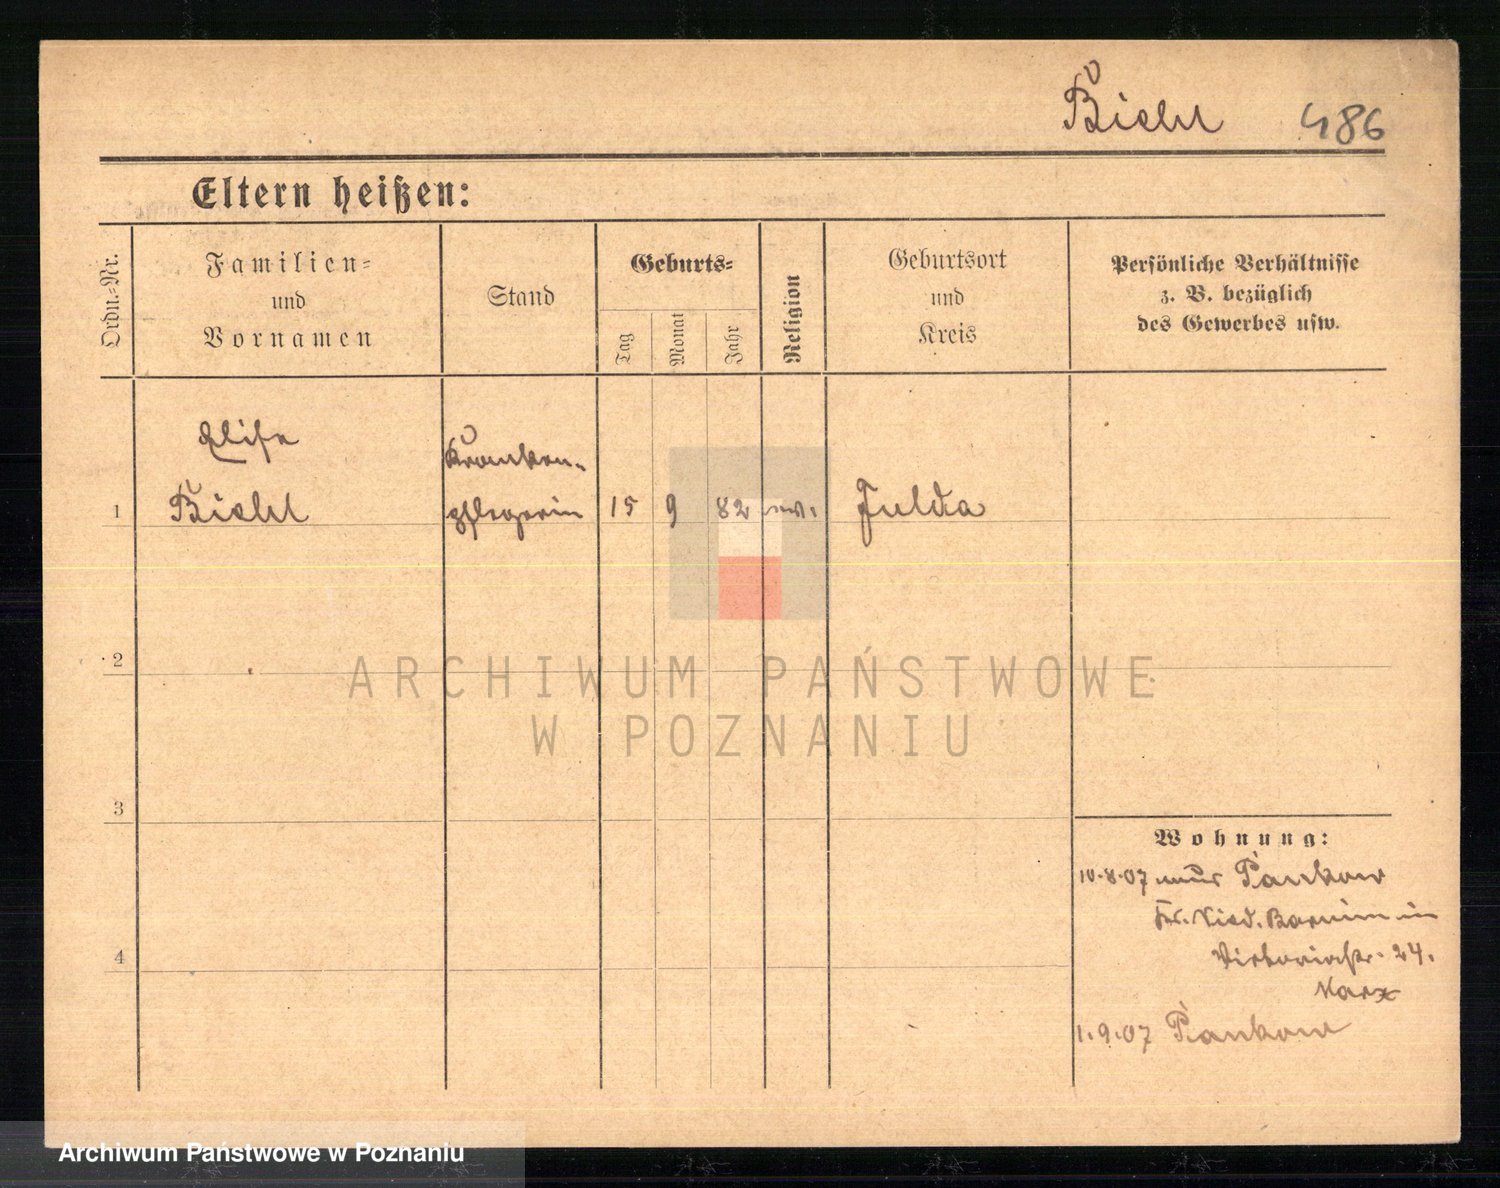 Biehl 486
Eltern heißen:
Ordn.-Nr.
Familien-
und
Vornamen
Stand
Geburts-
Tag
Monat
Jahr
Religion
Geburtsort
und
Kreis
Persönliche Verhältnisse
z. B. bezüglich
des Gewerbes usw.
Elise
Kranken-
1 Biehl pflegerin 15 9 82 ev. Fulda
2
ARCHIWUM PAŃSTWOWE
W POZNANIU
3
Wohnung:
10.8.07 Pankow
Kr. Nied. Barnim in
Viktoriastr. 24.
Marx
4
1.9.07 Pankow
Archiwum Państwowe w Poznaniu